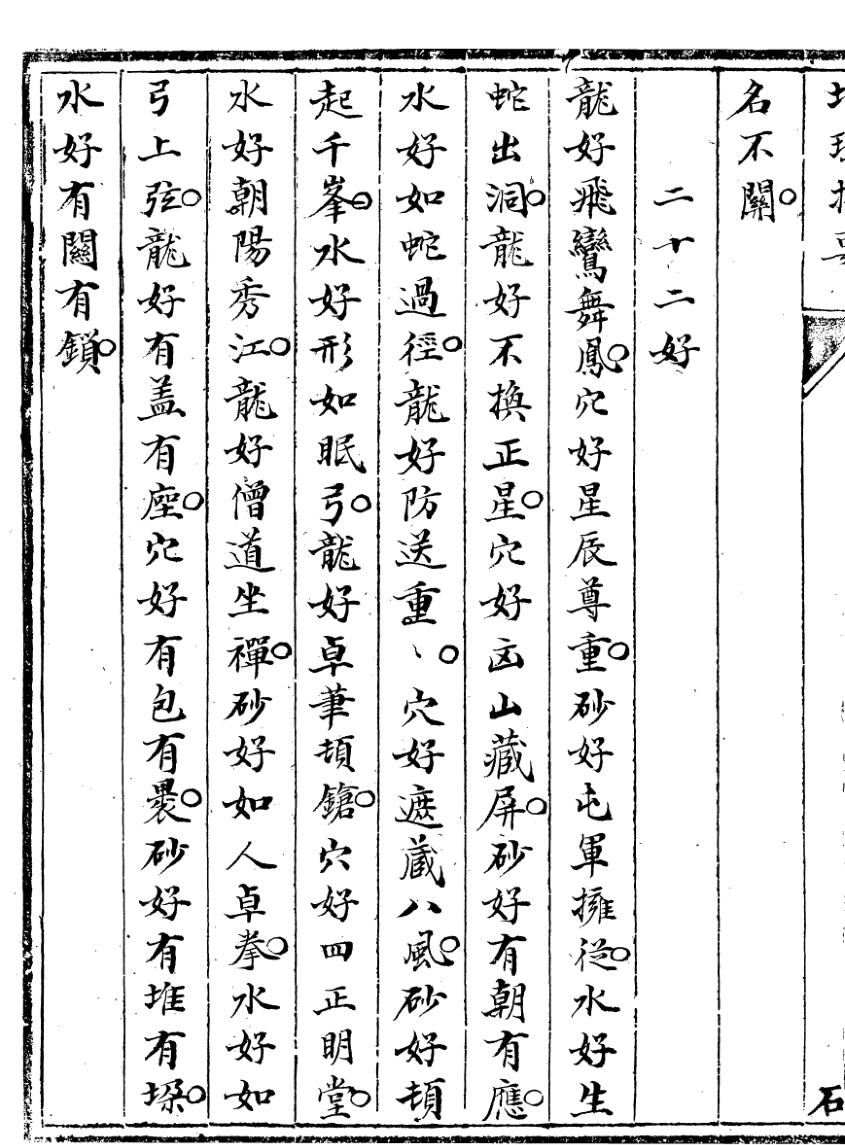 名不關○
二十二好
龍好飛鸞舞鳳○穴好星辰尊重○砂好屯軍擁從○水好生
蛇出洞○龍好不換正星○穴好凾山藏屏○砂好有朝有應○
水好如蛇過徑○龍好防送重、○穴好遮藏八風○砂好頓
起千峯○水好形如眠弓○龍好卓筆頓鎗○穴好四正明堂○
水好朝陽秀江○龍好僧道坐禪○砂好如人卓拳○水好如
弓上弦○龍好有盖有座○穴好有包有裹○砂好有堆有垜○
水好有關有鎖○